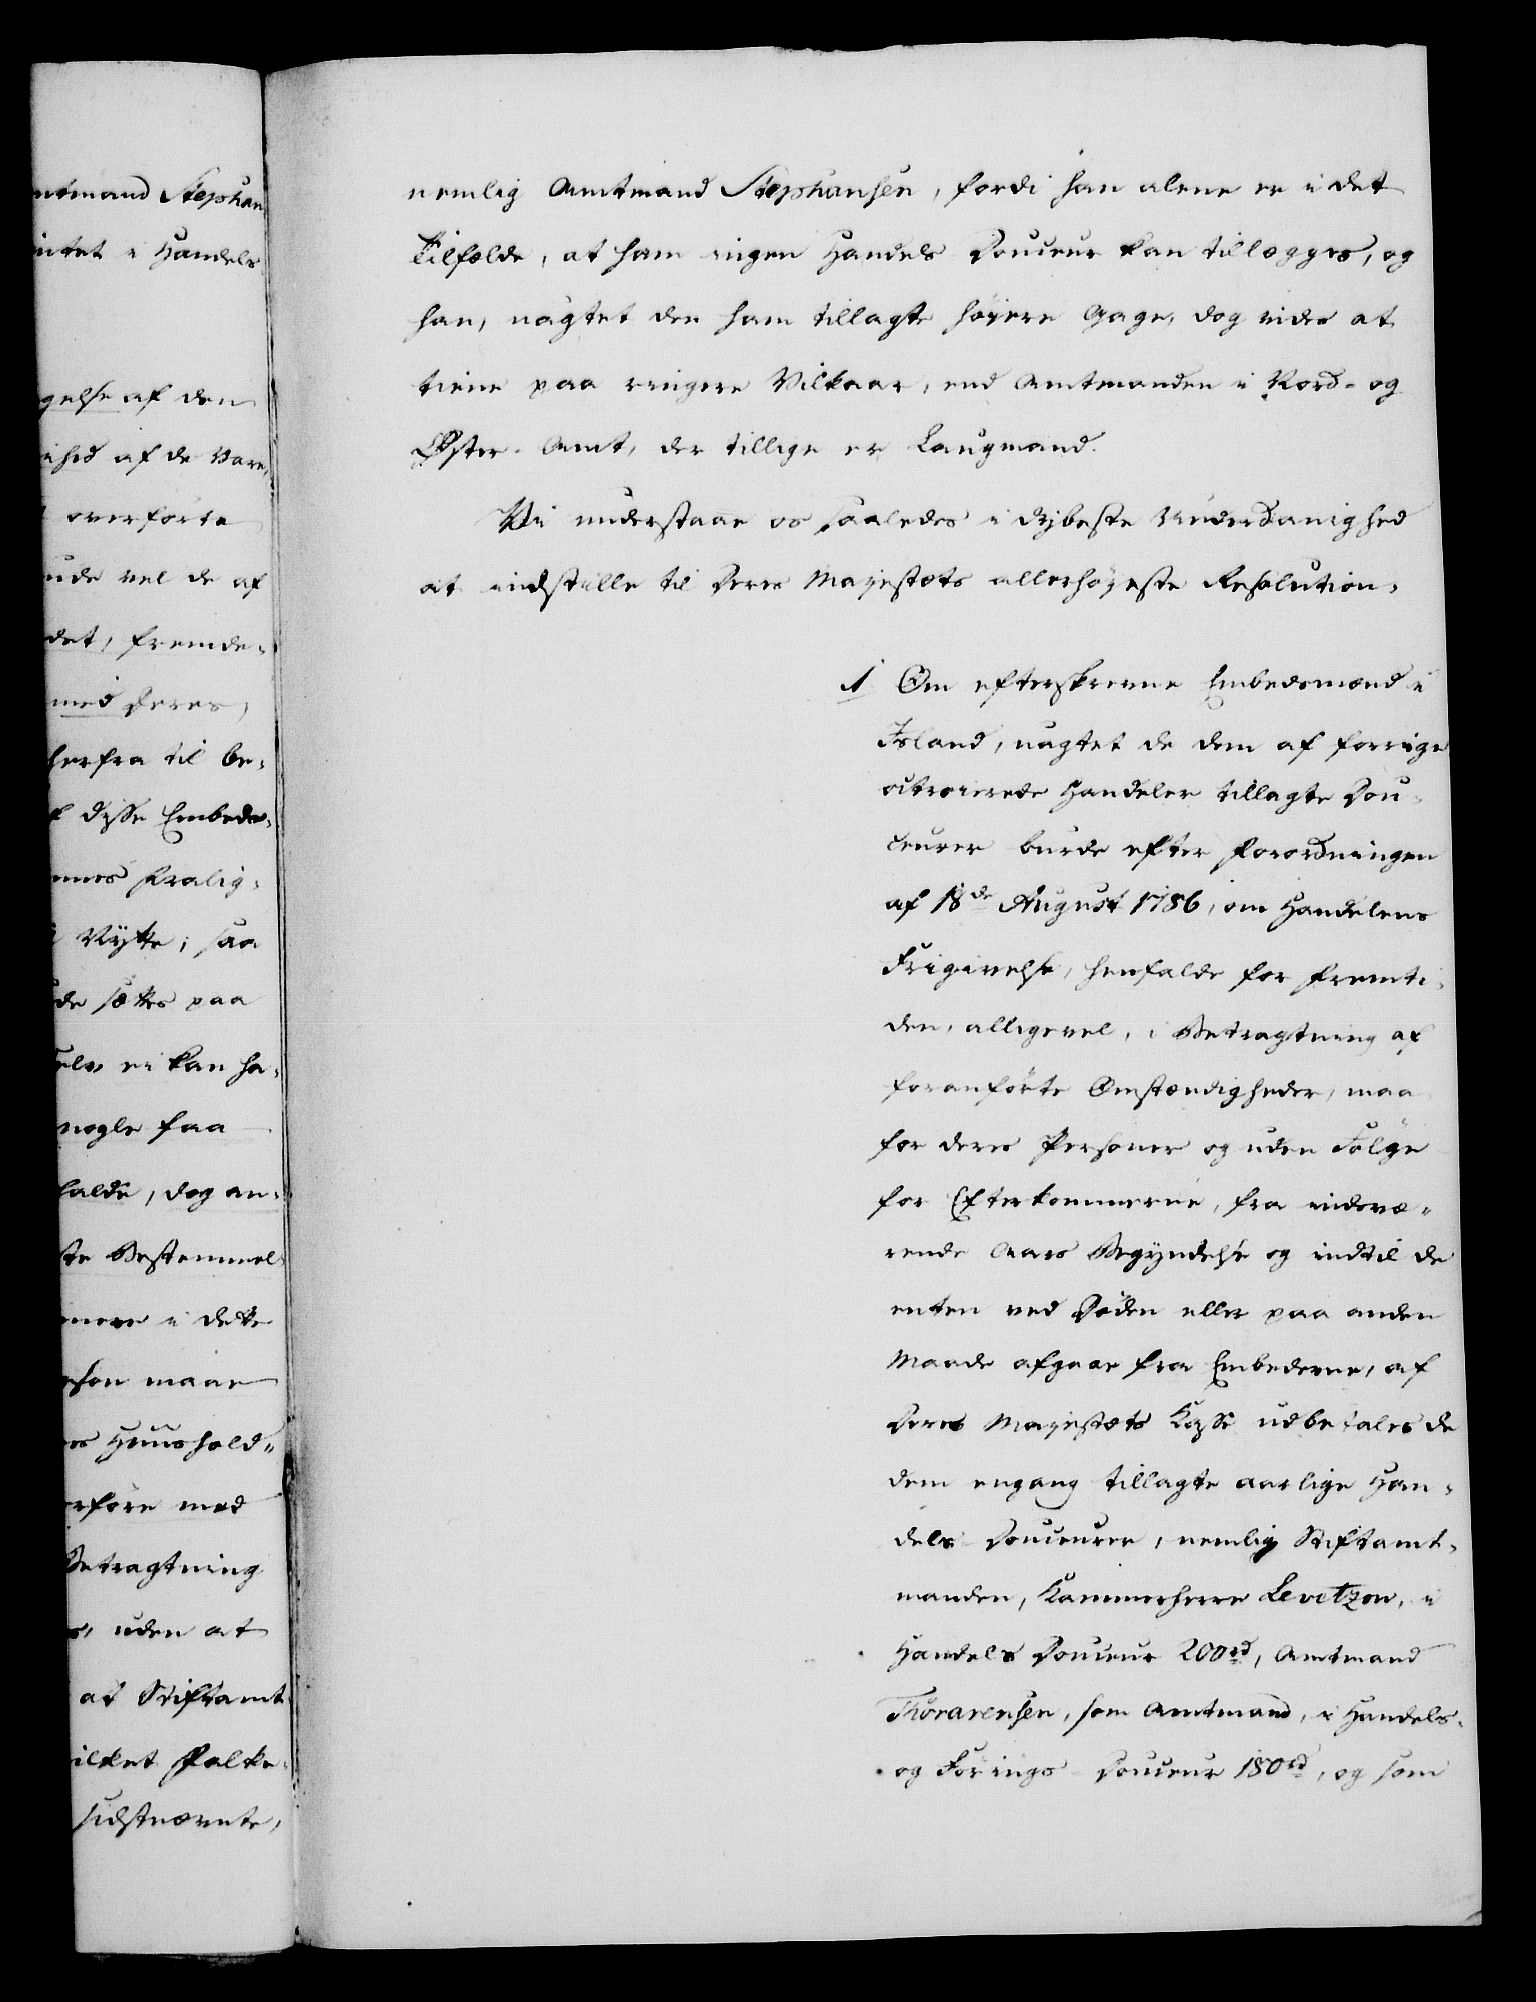 ntmand Stephan
intet i Handels
gelse af den
ihed af de Vare,
overförte
ude vel de af
det, fremde-
med deres,
herfra til be-
disse Embeds-
nnes Fralig-
Nytte; saa
de sættes paa
selv ei kan ha-
nogle faa
falde, dog an-
ste Bestemmel
mere i dette
rson maae
es Huushold-
rföre med
Betragtning
uden at
at Stiftamt
ilket Falke-
sidstnævnte,
nemlig Amtmand Stephansen, fordi han alene er i det
Tilfælde, at ham ingen Handels Douceur kan tillægges, og
han, uagtet den ham tillagte höyere Gage, dog vides at
tiene paa ringere Vilkaar, end Amtmanden i Nord- og
Öster-Amt, der tillige er Laugmand.
Vi understaae os saaledes i dybeste Underdanighed
at indstille til Deres Majestæts allerhöyeste Resolution,
1 Om efterskrevne Embedsmænd i
Island, uagtet de dem af forrige
octroierede Handeler tillagte Dou-
ceurer burde efter Forordningen
af 18de August 1786, om Handelens
Frigivelse, henfalde for Fremti-
den, alligevel, i Betragtning af
foranförte Omstændigheder, maa
for deres Personer og uden Fölge
for Efterkommerne, fra indevæ-
rende Aars Begyndelse og indtil de
enten ved Döden eller paa anden
Maade afgaae fra Embederne, af
Deres Majestæts Kasse udbetales de
dem engang tillagte aarlige Han-
dels Douceurer, nemlig Stiftamt-
manden, Kammerherre Levetzon, i
Handels Douceur 200 rd, Amtmand
Thorarensen, som Amtmand, i Handels-
og Förings Douceur 180 rd, og som